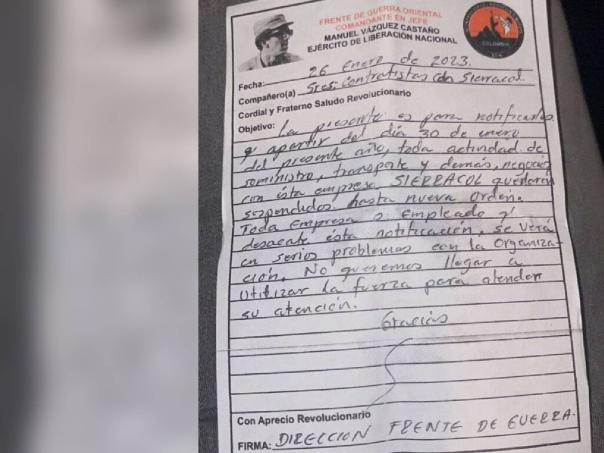 FRENTE DE GUERRA ORIENTAL
COMANDANTE EN JEFE
MANUEL VÁZQUEZ CASTAÑO
EJÉRCITO DE LIBERACIÓN NACIONAL
COLOMBIA
Fecha: 26 Enero de 2023.
Compañero(a) Sres: Contratistas con Sierracol.
Cordial y Fraterno Saludo Revolucionario
Objetivo: La presente es para notificarles
q apartir del día 30 de enero
del presente año, toda actividad de
suministro, transporte y demás, negocios
con ésta empresa SIERRACOL quedaran
suspendidos hasta nueva Orden.
Toda Empresa o Empleado q'
desacate ésta notificación, se verá
en serios problemas con la Organiza-
ción. No queremos llegar a
Utilizar la fuerza para atender
su atención.
Gracias
Con Aprecio Revolucionario
FIRMA: DIRECCION FRENTE DE GUERRA.